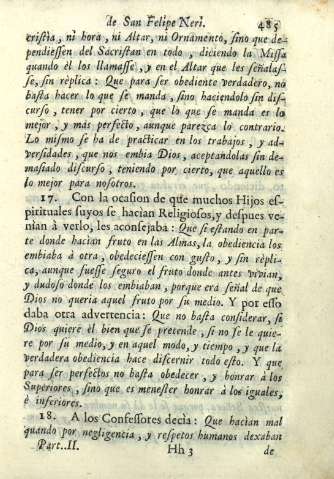 de San Felipe Neri. 485
cristia, ni hora, ni Altar, ni Ornamento, sino que de-
pendiessen del Sacristan en todo, diciendo la Missa
quando èl los llamasse, y en el Altar que les señalas-
se, sin rèplica: Que para ser obediente verdadero, no
basta hacer lo que se manda, sino haciendolo sin dis-
curso, tener por cierto, que lo que se manda es lo
mejor, y màs perfecto, aunque parezca lo contrario.
Lo mismo se ha de practicar en los trabajos, y ad-
versidades, que nos embia Dios, aceptandolas sin de-
masiado discurso, teniendo por cierto, que aquello es
lo mejor para nosotros.
17. Con la ocasion de que muchos Hijos es-
pirituales suyos se hacian Religiosos, y despues ve-
nian à verlo, les aconsejaba: Que si estando en par-
te donde hacian fruto en las Almas, la obediencia los
embiaba à otra, obedeciessen con gusto, y sin rèpli-
ca, aunque fuesse seguro el fruto donde antes vivian,
y dudoso donde los embiaban, porque era señal de que
Dios no queria aquel fruto por su medio. Y por esso
daba otra advertencia: Que no basta considerar, si
Dios quiere el bien que se pretende, si no se le quie-
re por su medio, y en aquel modo, y tiempo, y que la
verdadera obediencia hace discernir todo esto. Y que
para ser perfectos no basta obedecer, y honrar à los
Superiores, sino que es menester honrar à los iguales,
è inferiores.
18. A los Confessores decia: Que hacian mal
quando por negligencia, y respetos humanos dexaban
Part. II. Hh 3 de